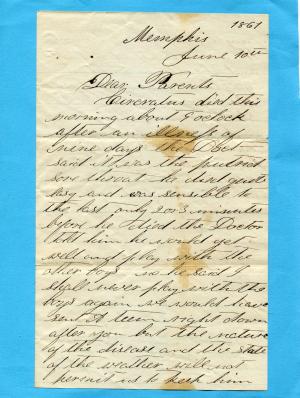 1861
Memphis
June 10th
Dear Parents
Circralus died this
morning about 9 oclock
after an illness of
nine days the Doct
said it was the putrid
sore throat he died quite
easy and was sensible to
the last only 2 or 3 minutes
before he died the Doctor
told him he would get
well and play with the
other boys no he said I
shall never play with the
boys again we would have
sent A team right down
after you but the nature
of the disease and the state
of the weather will not
permit us to keep him